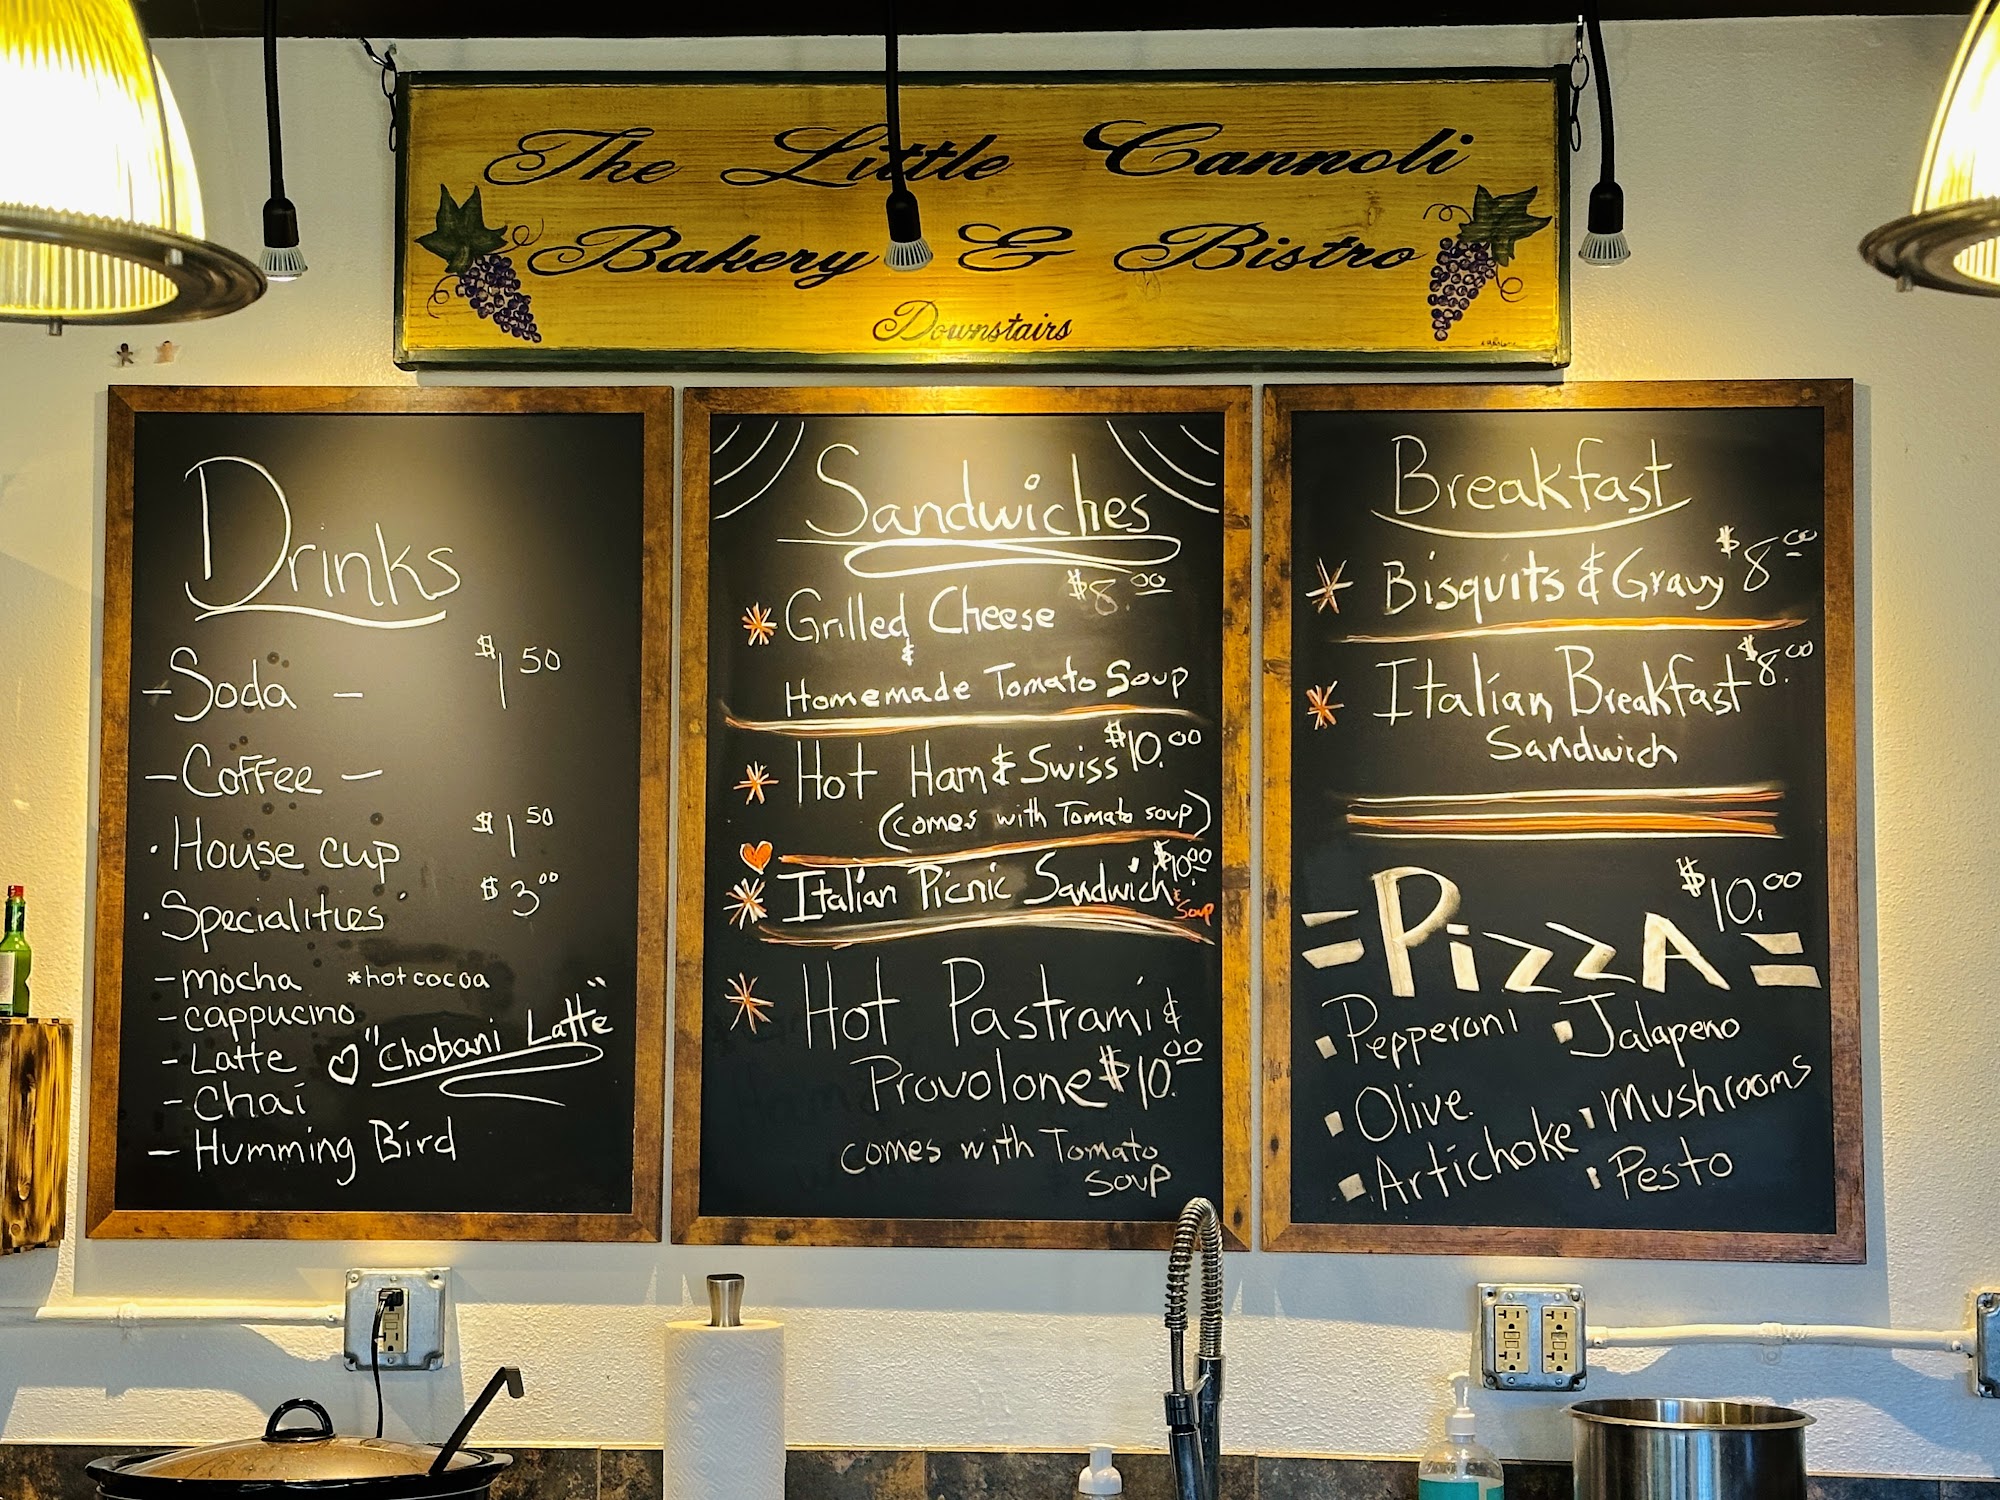 The Little Cannoli
Bakery & Bistro
Downstairs
Drinks
- Soda - $1 50
- Coffee -
· House cup $1 50
· Specialities $3 00
- mocha *hot cocoa
- cappucino
- Latte ♡ "Chobani Latte"
- Chai
- Humming Bird
Sandwiches
* Grilled Cheese $8.00
&
Homemade Tomato Soup
* Hot Ham & Swiss $10.00
(comes with Tomato soup)
* Italian Picnic Sandwich $10.00
& Soup
* Hot Pastrami &
Provolone $10.00
comes with Tomato
Soup
Breakfast
* Bisquits & Gravy $8 00
* Italian Breakfast $8.00
Sandwich
= PizzA = $10.00
▪ Pepperoni ▪ Jalapeno
▪ Olive ▪ Mushrooms
▪ Artichoke ▪ Pesto